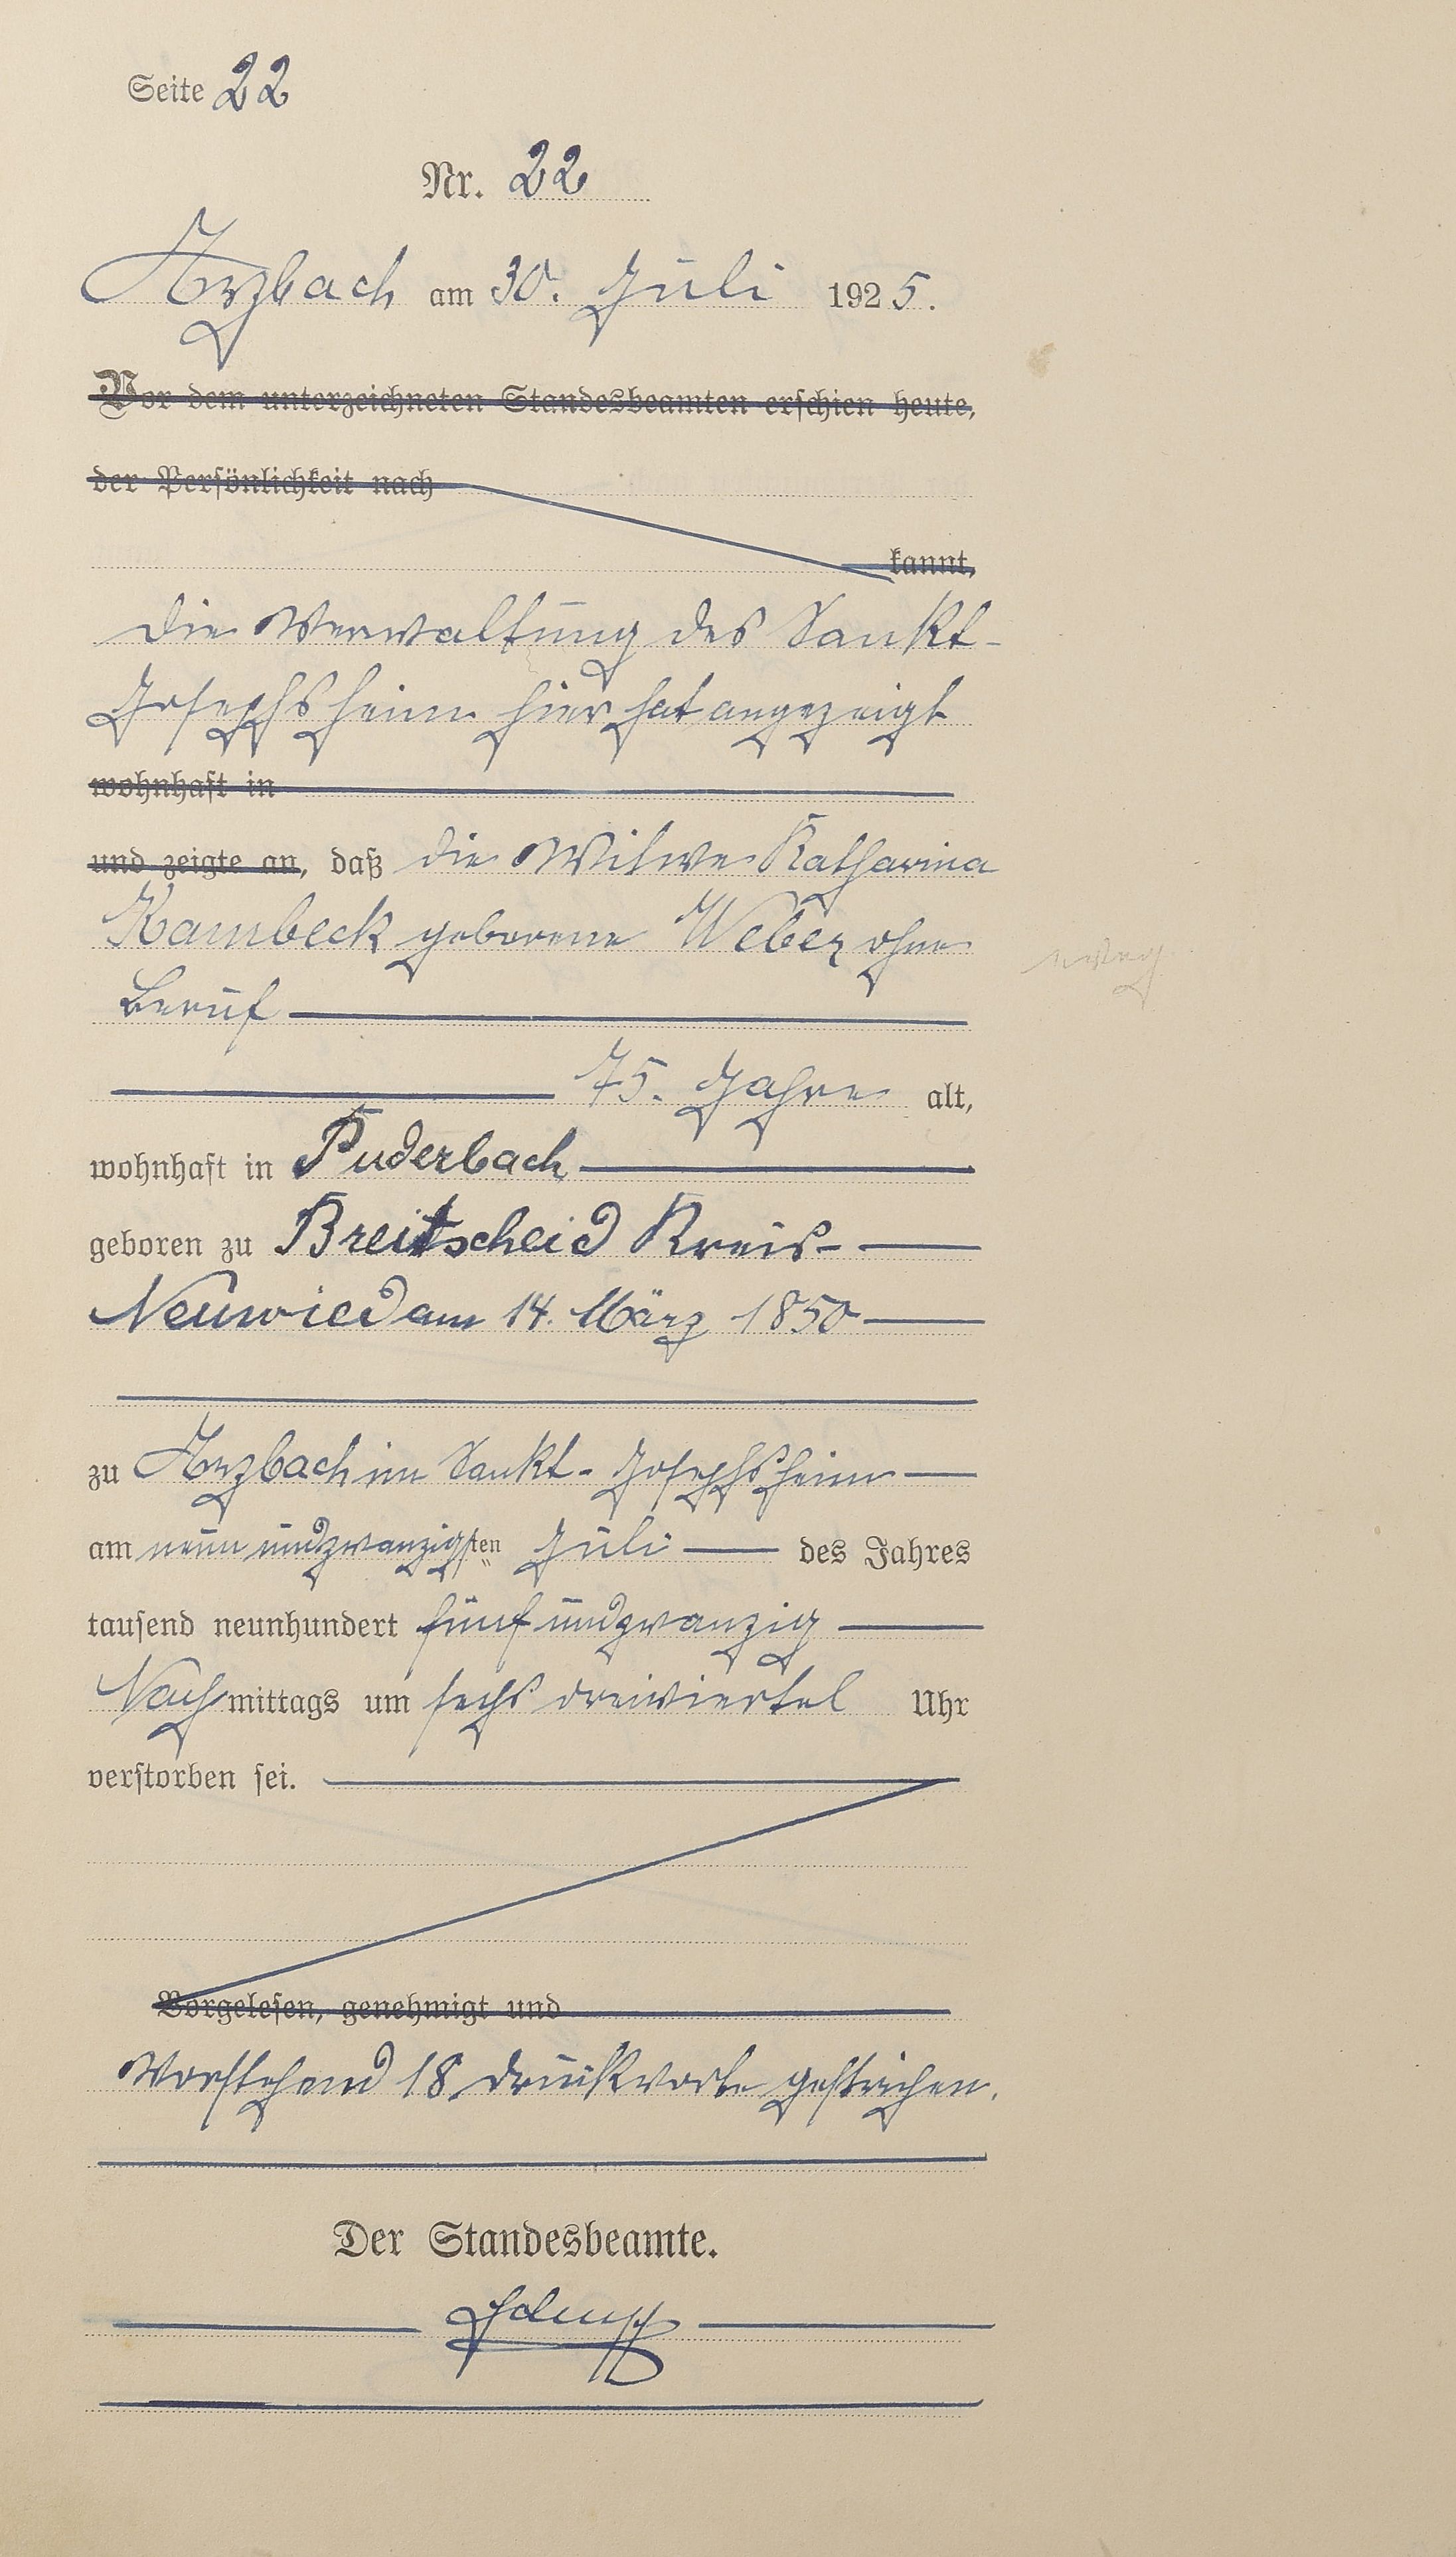 Seite 22
Nr. 22
Arzbach am 30. Juli 1925.
Vor dem unterzeichneten Standesbeamten erschien heute,
der Persönlichkeit nach
kannt,
die Verwaltung des Sankt-
Josephsheim hier hat angezeigt
wohnhaft in
und zeigte an, daß die Witwe Katharina
Kambeck geborene Weber ohne
Beruf
75. Jahre alt,
wohnhaft in Puderbach
geboren zu Breitscheid Kreis
Neuwied am 14. März 1850
zu Arzbach im Sankt-Josephsheim
am neunundzwanzigsten Juli des Jahres
tausend neunhundert fünfundzwanzig
Nachmittags um sechs dreiviertel Uhr
verstorben sei.
Vorgelesen, genehmigt und
Vorstehend 18 Druckworte gestrichen.
Der Standesbeamte.